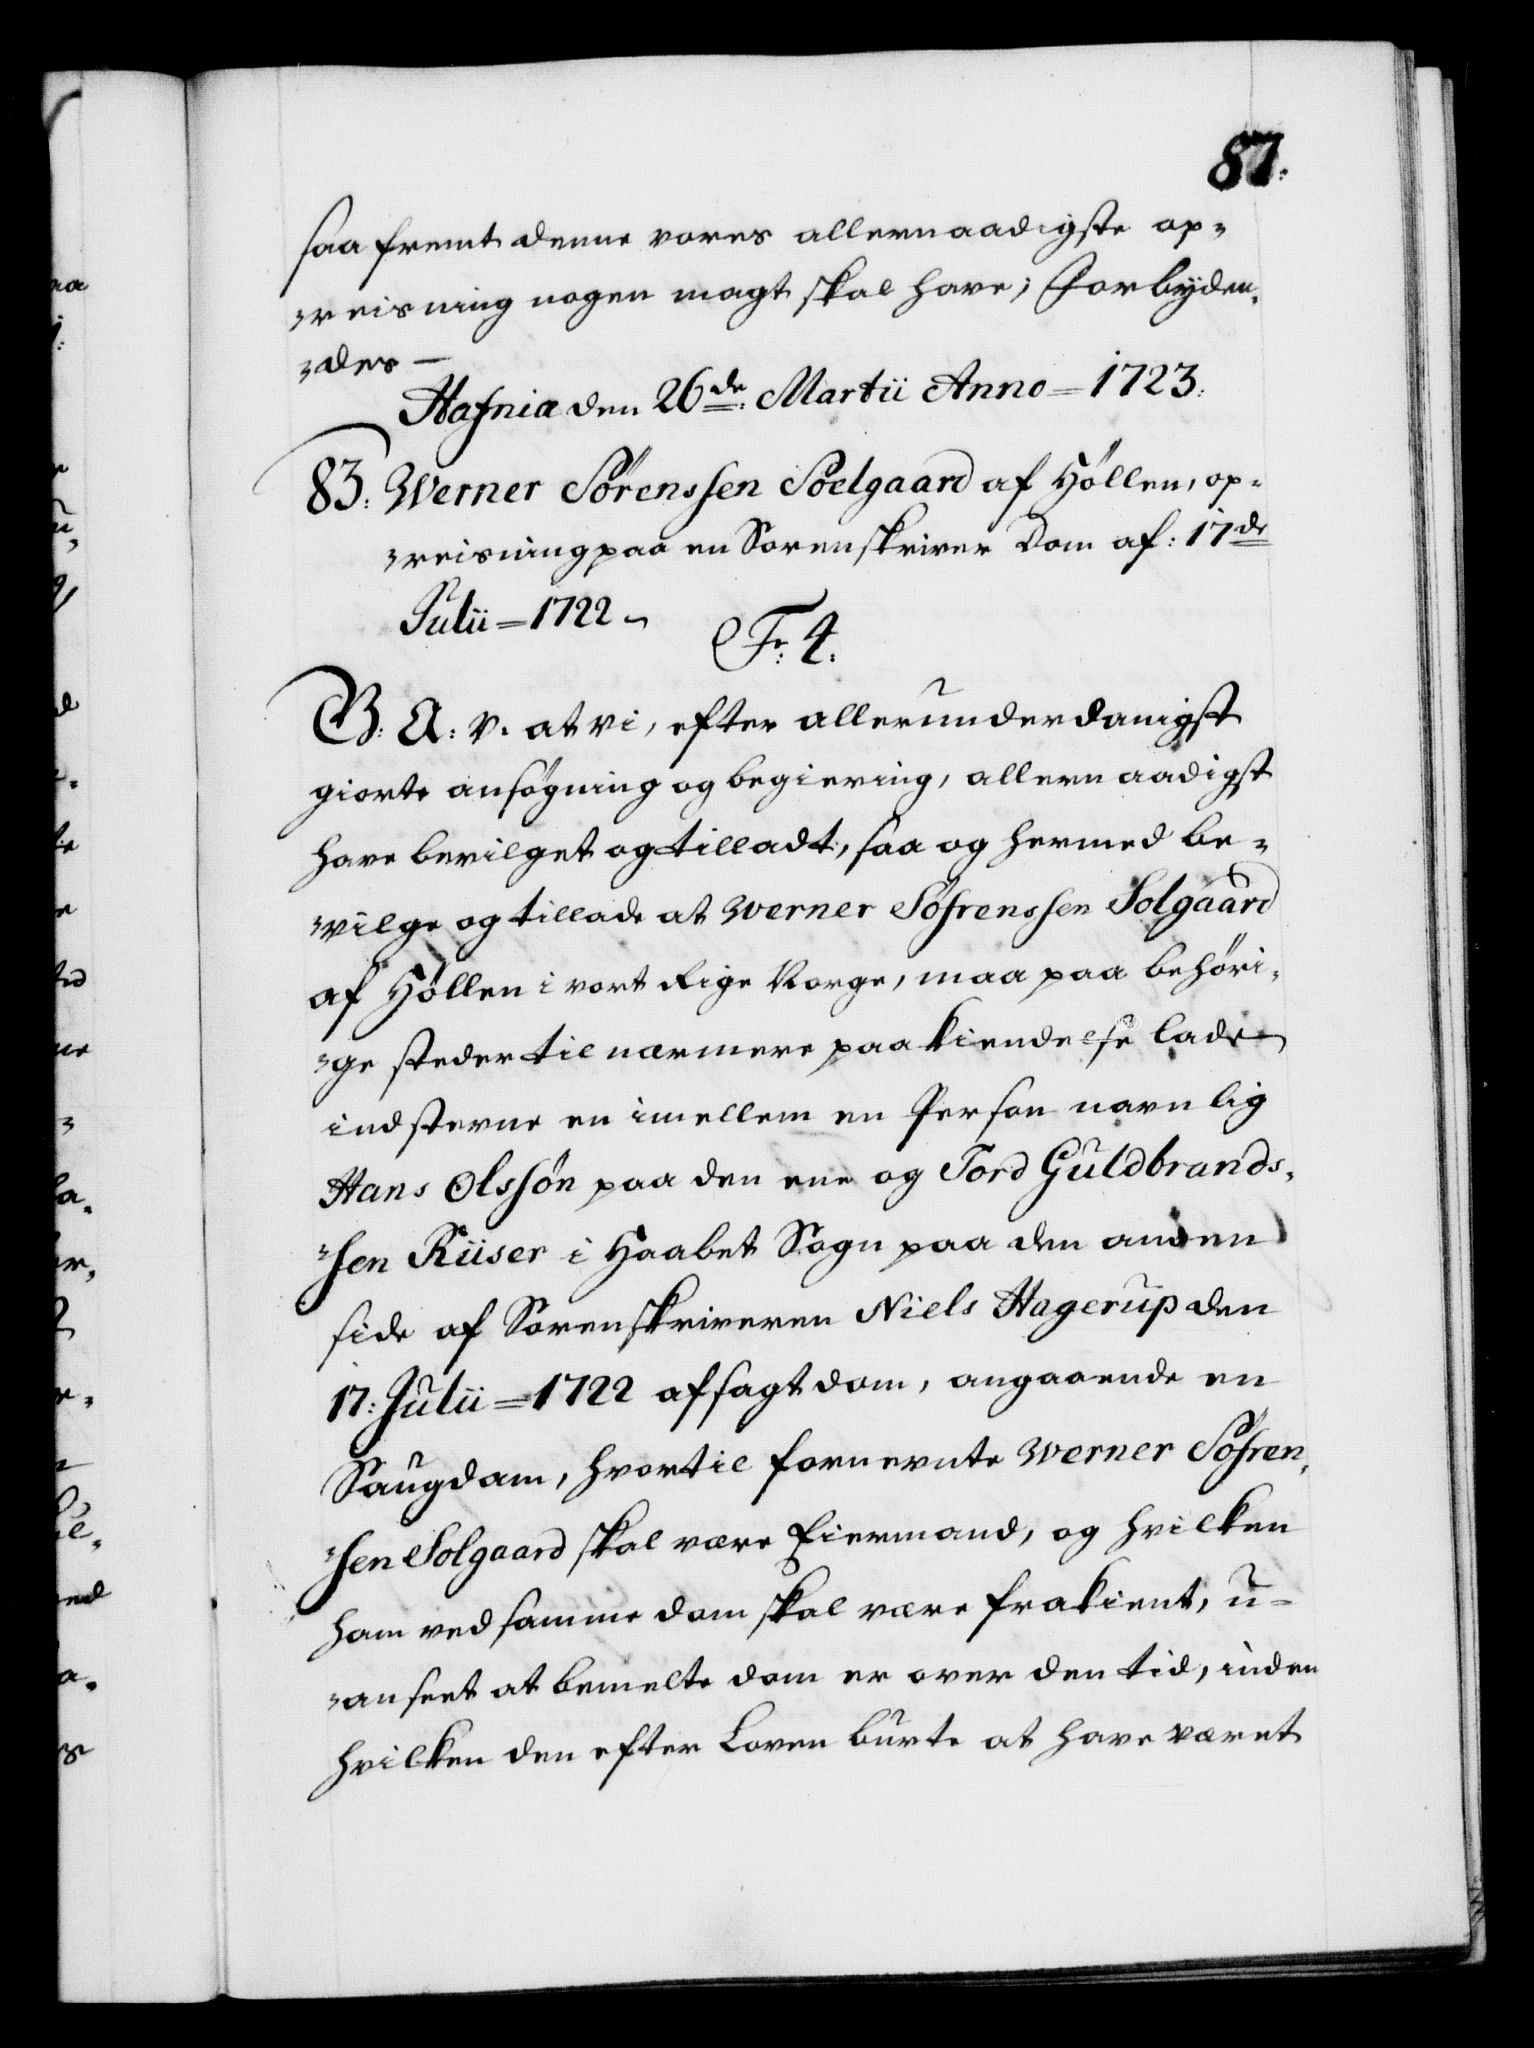 87.
saa fremt denne vores allernaadigste op-
-reisning nogen magt skal have; Forbyden-
-des -
Hafniæ den 26de Martii Anno = 1723.
83. Werner Sörenssen Soelgaard af Höllen, op-
-reisning paa en Sorenskriver Dom af: 17de
Julii = 1722 -
Fr: 4.
G. A: V. at vi, efter allerunderdanigst
giorte ansögning og begiering, allernaadigst
have bevilget og tilladt, saa og hermed be-
-vilge og tillade at Werner Söfrenssen Solgaard
af Höllen i vort Rige Norge, maa paa behöri-
-ge steder til nærmere paakiendelse lade
indstevne en imellem en Person navnlig
Hans Olssön paa den ene og Tord Guldbrands-
-sen Riiser i Haabet Sogn paa den anden
side af Sorenskriveren Niels Hagerup den
17: Julii = 1722 afsagt dom, angaaende en
Saugdam, hvortil fornevnte Werner Söfren-
-sen Solgaard skal være Eiermand, og hvilken
ham ved samme dom skal være frakient, u-
-anseet at bemelte dom er over den tid, inden
hvilken den efter Loven burte at have været